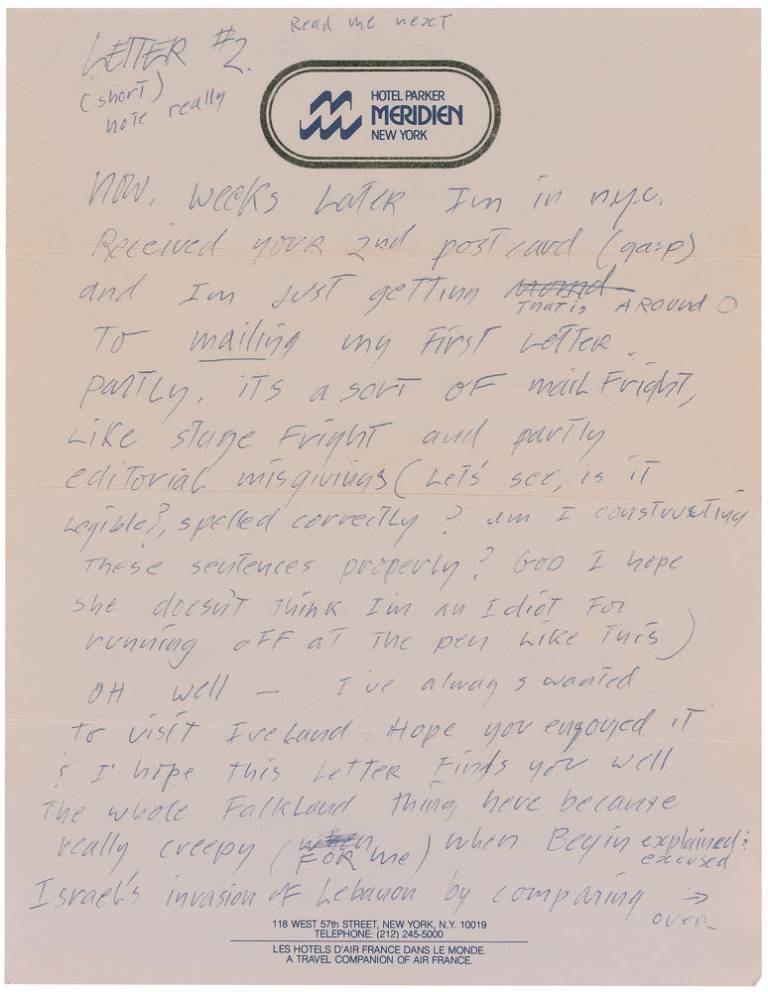 Read me next
LETTER #2.
(short)
note really
HOTEL PARKER
MERIDIEN
NEW YORK
NOW, weeks Later Im in n.y.c.
Received your 2nd post card (gasp)
and Im just getting
That is AROUND
To mailing my First Letter.
partly, its a sort of mail Fright,
Like stage Fright and partly
editorial misgivings (Let's see, is it
Legible?, spelled correctly? am I constructing
These sentences properly? GOD I hope
she doesn't Think I'm an Idiot For
running off at The pen Like This)
OH well — I've always wanted
to visit Ireland. Hope you engoyed it
& I hope this Letter Finds you well
The whole Falkland thing here became
really creepy (FOR me) when Begin explained &
excused
Israel's invasion of Lebanon by comparing →
over
118 WEST 57th STREET, NEW YORK, N.Y. 10019
TELEPHONE: (212) 245-5000
LES HOTELS D'AIR FRANCE DANS LE MONDE.
A TRAVEL COMPANION OF AIR FRANCE.